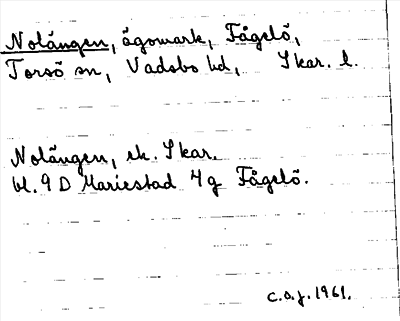 Nolängen, ägomark, Fågelö,
Torsö sn, Vadsbo hd, Skar. l.
Nolängen, ek. Skar.
bl. 9 D Mariestad 4 g Fågelö.
C.O.J. 1961.